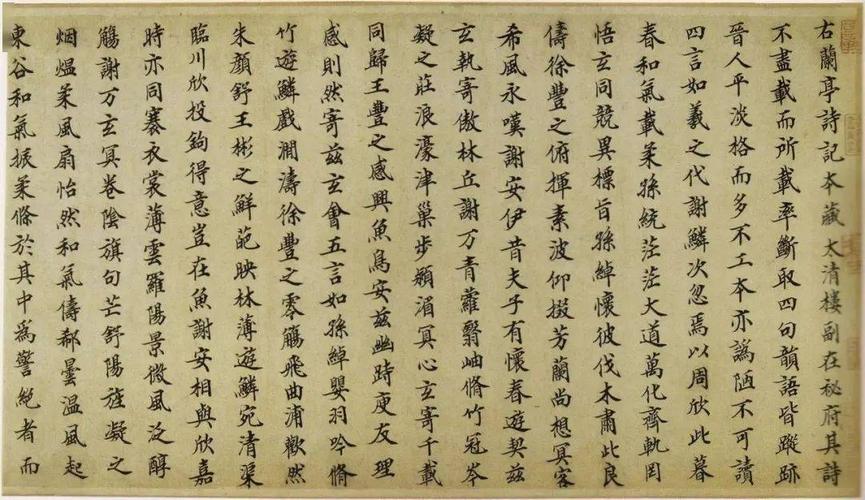 右蘭亭詩記本藏太清樓副在祕府其詩
不盡載而所載率斷取四句韻語皆蹤跡
晉人平淡格而多不工本亦譌陋不可讀
四言如羲之代謝鱗次忽焉以周欣此暮
春和氣載柔孫統茫茫大道萬化齊軌罔
悟玄同競異標旨孫綽懷彼伐木肅此良
儔徐豐之俯揮素波仰掇芳蘭尚想冥客
希風永嘆謝安伊昔夫子有懷春遊契茲
玄執寄傲林丘謝万青蘿翳岫脩竹冠岑
凝之莊浪濠津巢步潁湄冥心玄寄千載
同歸王豐之感興魚鳥安茲幽跱庾友理
感則然寄茲玄會五言如孫綽嬰羽吟脩
竹遊鱗戲澗濤徐豐之零觴飛曲浦歡然
朱顏舒王彬之鮮葩映林薄遊鱗宛清渠
臨川欣投鉤得意豈在魚謝安相與欣嘉
時亦同褰衣裳薄雲羅陽景微風泛醇
觴謝万玄冥卷陰旗句芒舒陽旌凝之
烟熅柔風扇怡然和氣儔郗曇温風起
東谷和氣振柔條於其中為警絕者而